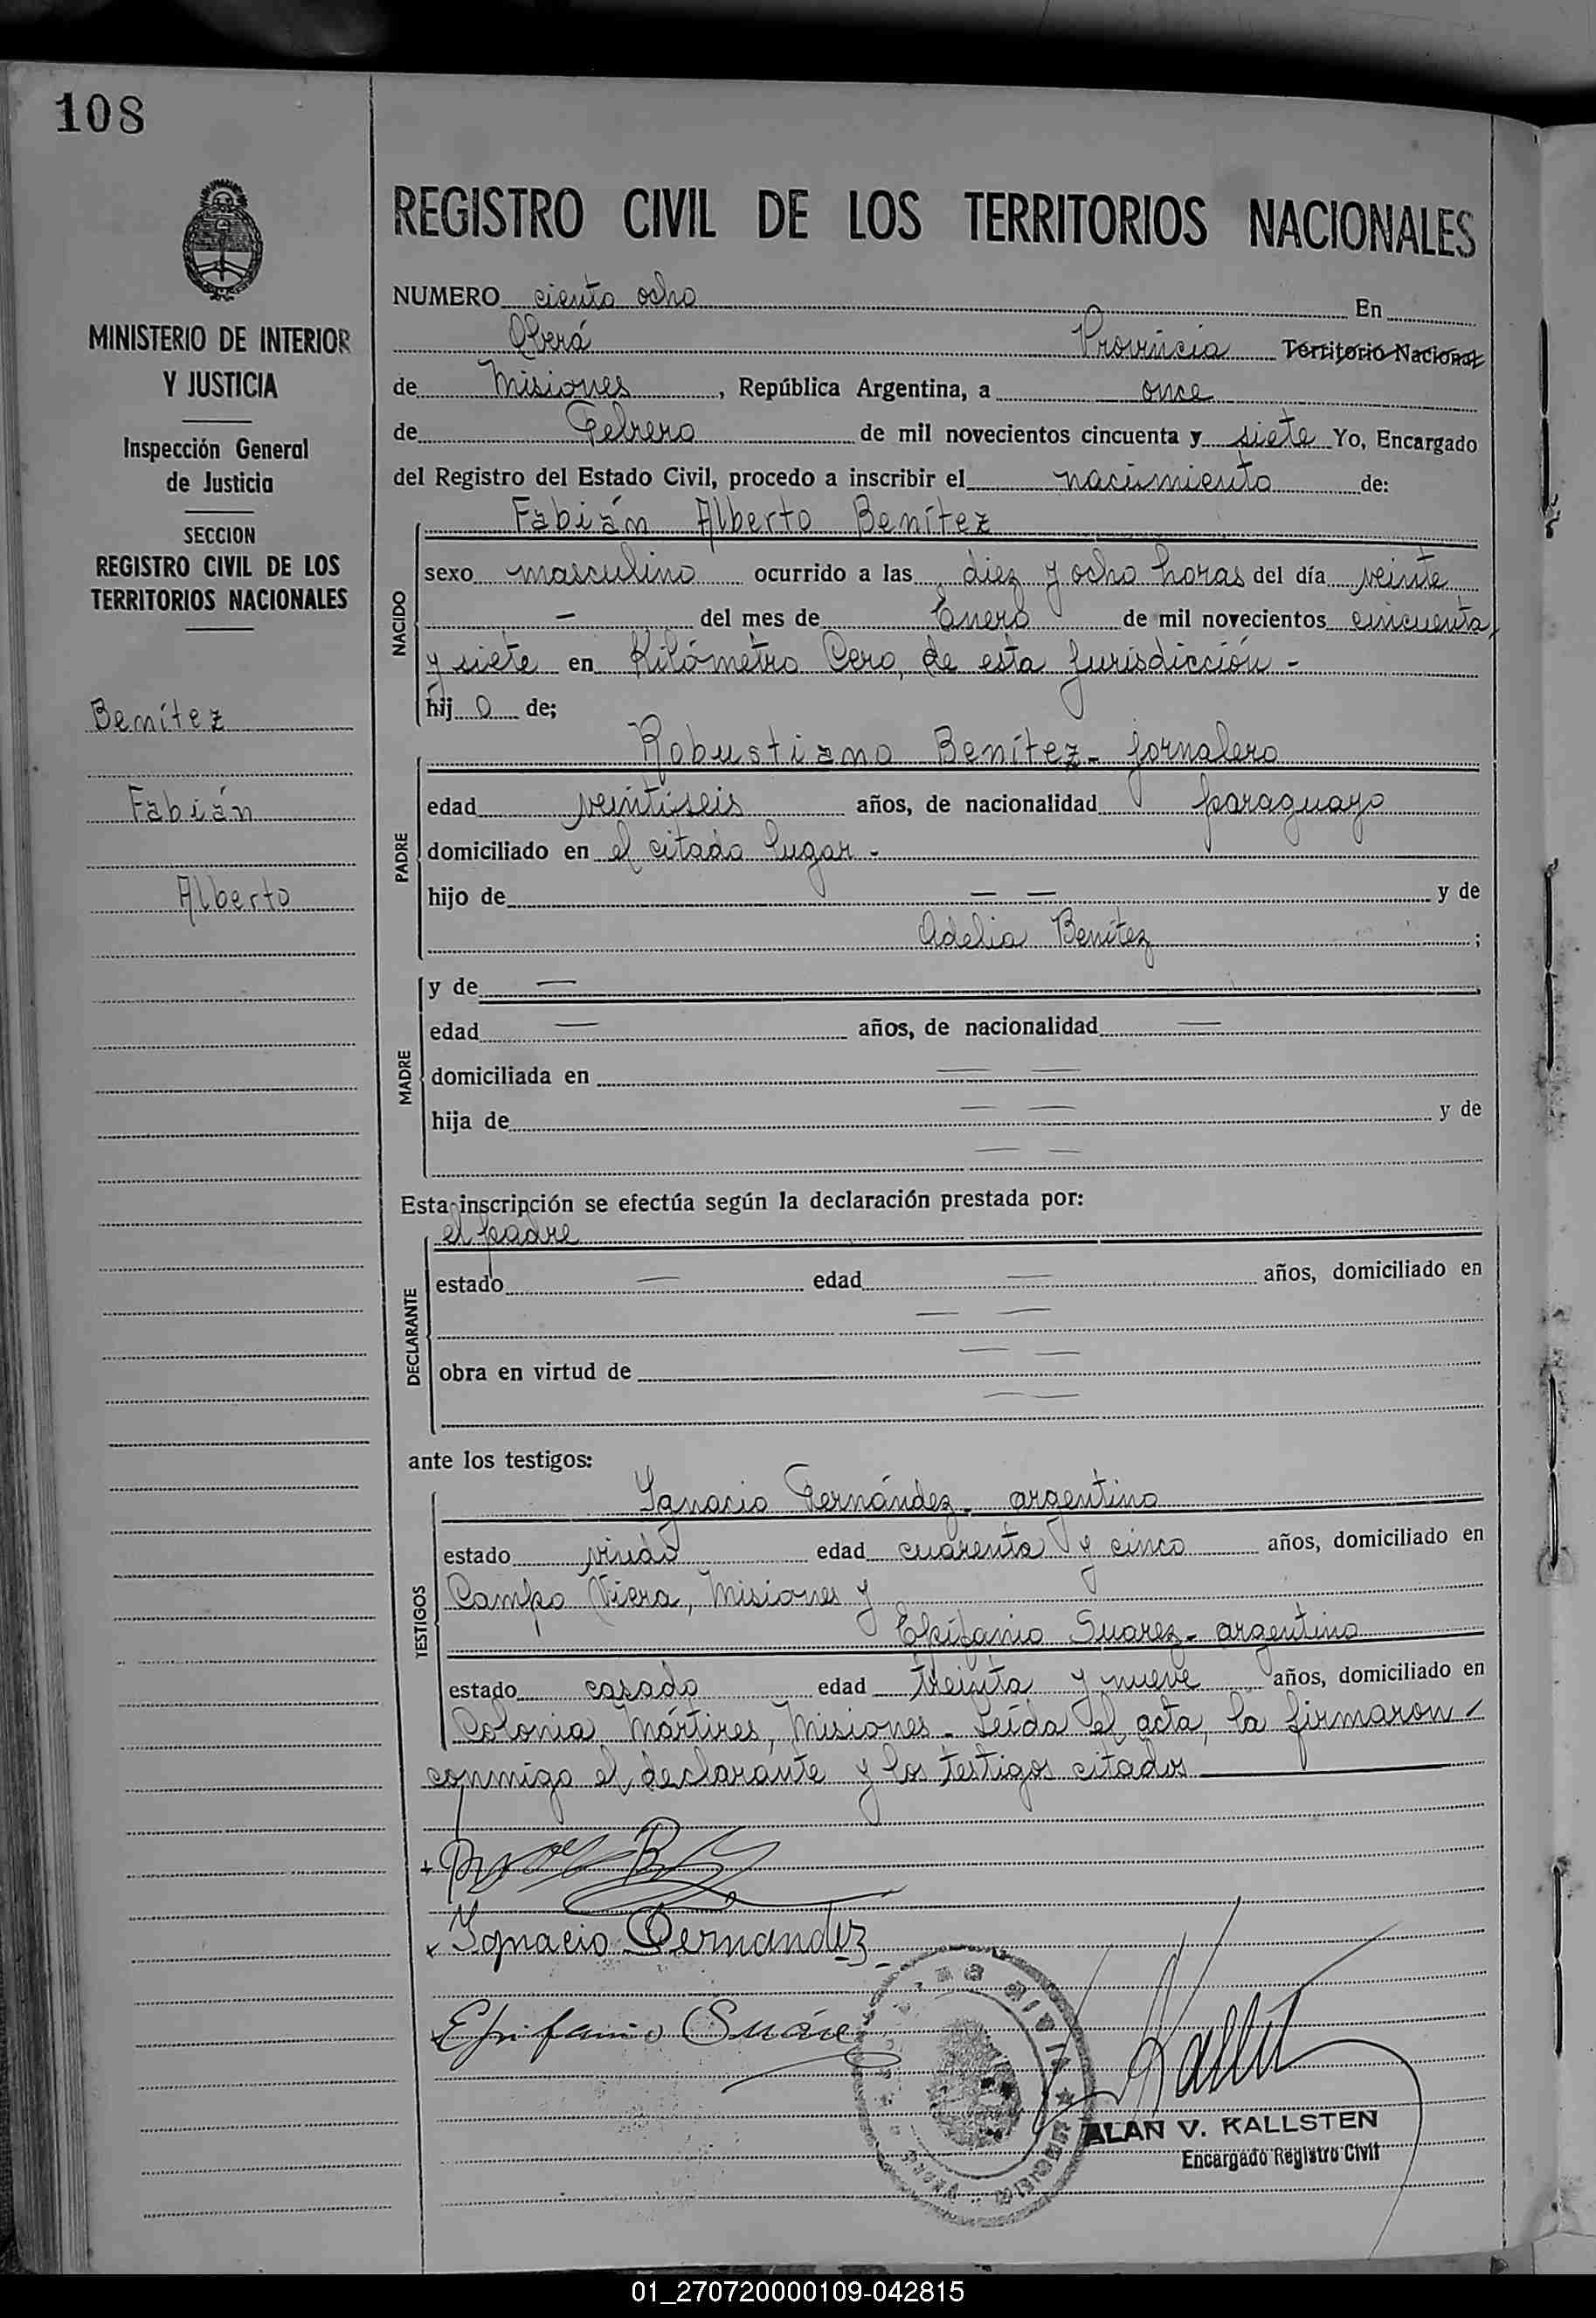 108
MINISTERIO DE INTERIOR
Y JUSTICIA
Inspección General
de Justicia
SECCION
REGISTRO CIVIL DE LOS
TERRITORIOS NACIONALES
Benítez
Fabián
Alberto
REGISTRO CIVIL DE LOS TERRITORIOS NACIONALES
NUMERO ciento ocho En
Oberá Provincia Territorio Nacional
de Misiones, República Argentina, a once
de Febrero de mil novecientos cincuenta y siete Yo, Encargado
del Registro del Estado Civil, procedo a inscribir el nacimiento de:
NACIDO
Fabián Alberto Benítez
sexo masculino ocurrido a las diez y ocho horas del día veinte
- del mes de Enero de mil novecientos cincuenta
y siete en Kilómetro Cero, de esta jurisdicción -
hij o de;
PADRE
Robustiano Benítez - jornalero
edad veintiseis años, de nacionalidad paraguayo
domiciliado en el citado lugar -
hijo de — — y de
Adelia Benítez ;
MADRE
y de —
edad — años, de nacionalidad —
domiciliada en — —
hija de — — y de
— —
Esta inscripción se efectúa según la declaración prestada por:
DECLARANTE
el padre
estado — edad — años, domiciliado en
— —
obra en virtud de — —
— —
ante los testigos:
TESTIGOS
Ignacio Fernández - argentino
estado viudo edad cuarenta y cinco años, domiciliado en
Campo Viera, Misiones y
Epifanio Suarez - argentino
estado casado edad treinta y nueve años, domiciliado en
Colonia Mártires, Misiones - Leída el acta, la firmaron
conmigo el declarante y los testigos citados
Ignacio Fernandez
Epifanio Suárez
ALAN V. KALLSTEN
Encargado Registro Civil
01_270720000109-042815